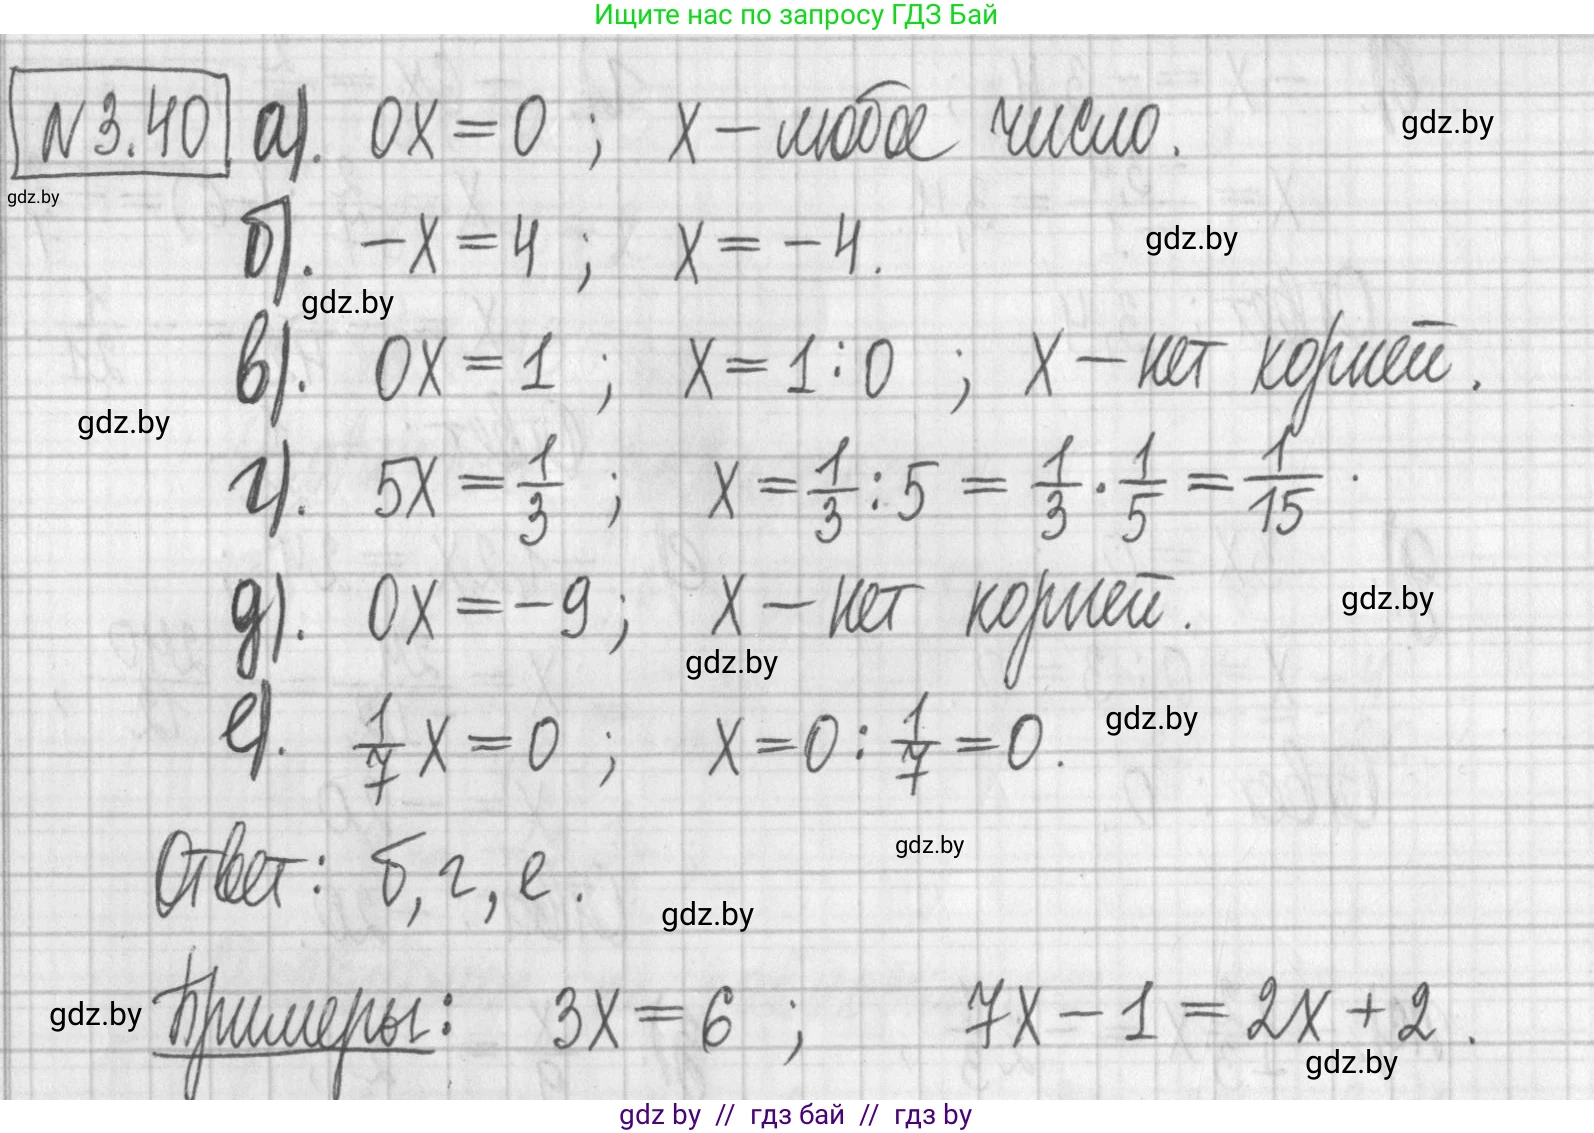 Ищите нас по запросу ГДЗ Бай
N 3.40 а). 0x = 0 ; x – любое число.
gdz.by
gdz.by
б). –x = 4 ; x = –4.
gdz.by
gdz.by
в). 0x = 1 ; x = 1 : 0 ; x – нет корней.
gdz.by
г). 5x = 1/3 ; x = 1/3 : 5 = 1/3 · 1/5 = 1/15.
д). 0x = –9 ; x – нет корней.
gdz.by
gdz.by
е). 1/7 x = 0 ; x = 0 : 1/7 = 0.
gdz.by
Ответ: б, г, е.
gdz.by
gdz.by
Примеры: 3x = 6 ; 7x – 1 = 2x + 2.
gdz.by
gdz.by
gdz by // гдз бай // гдз by